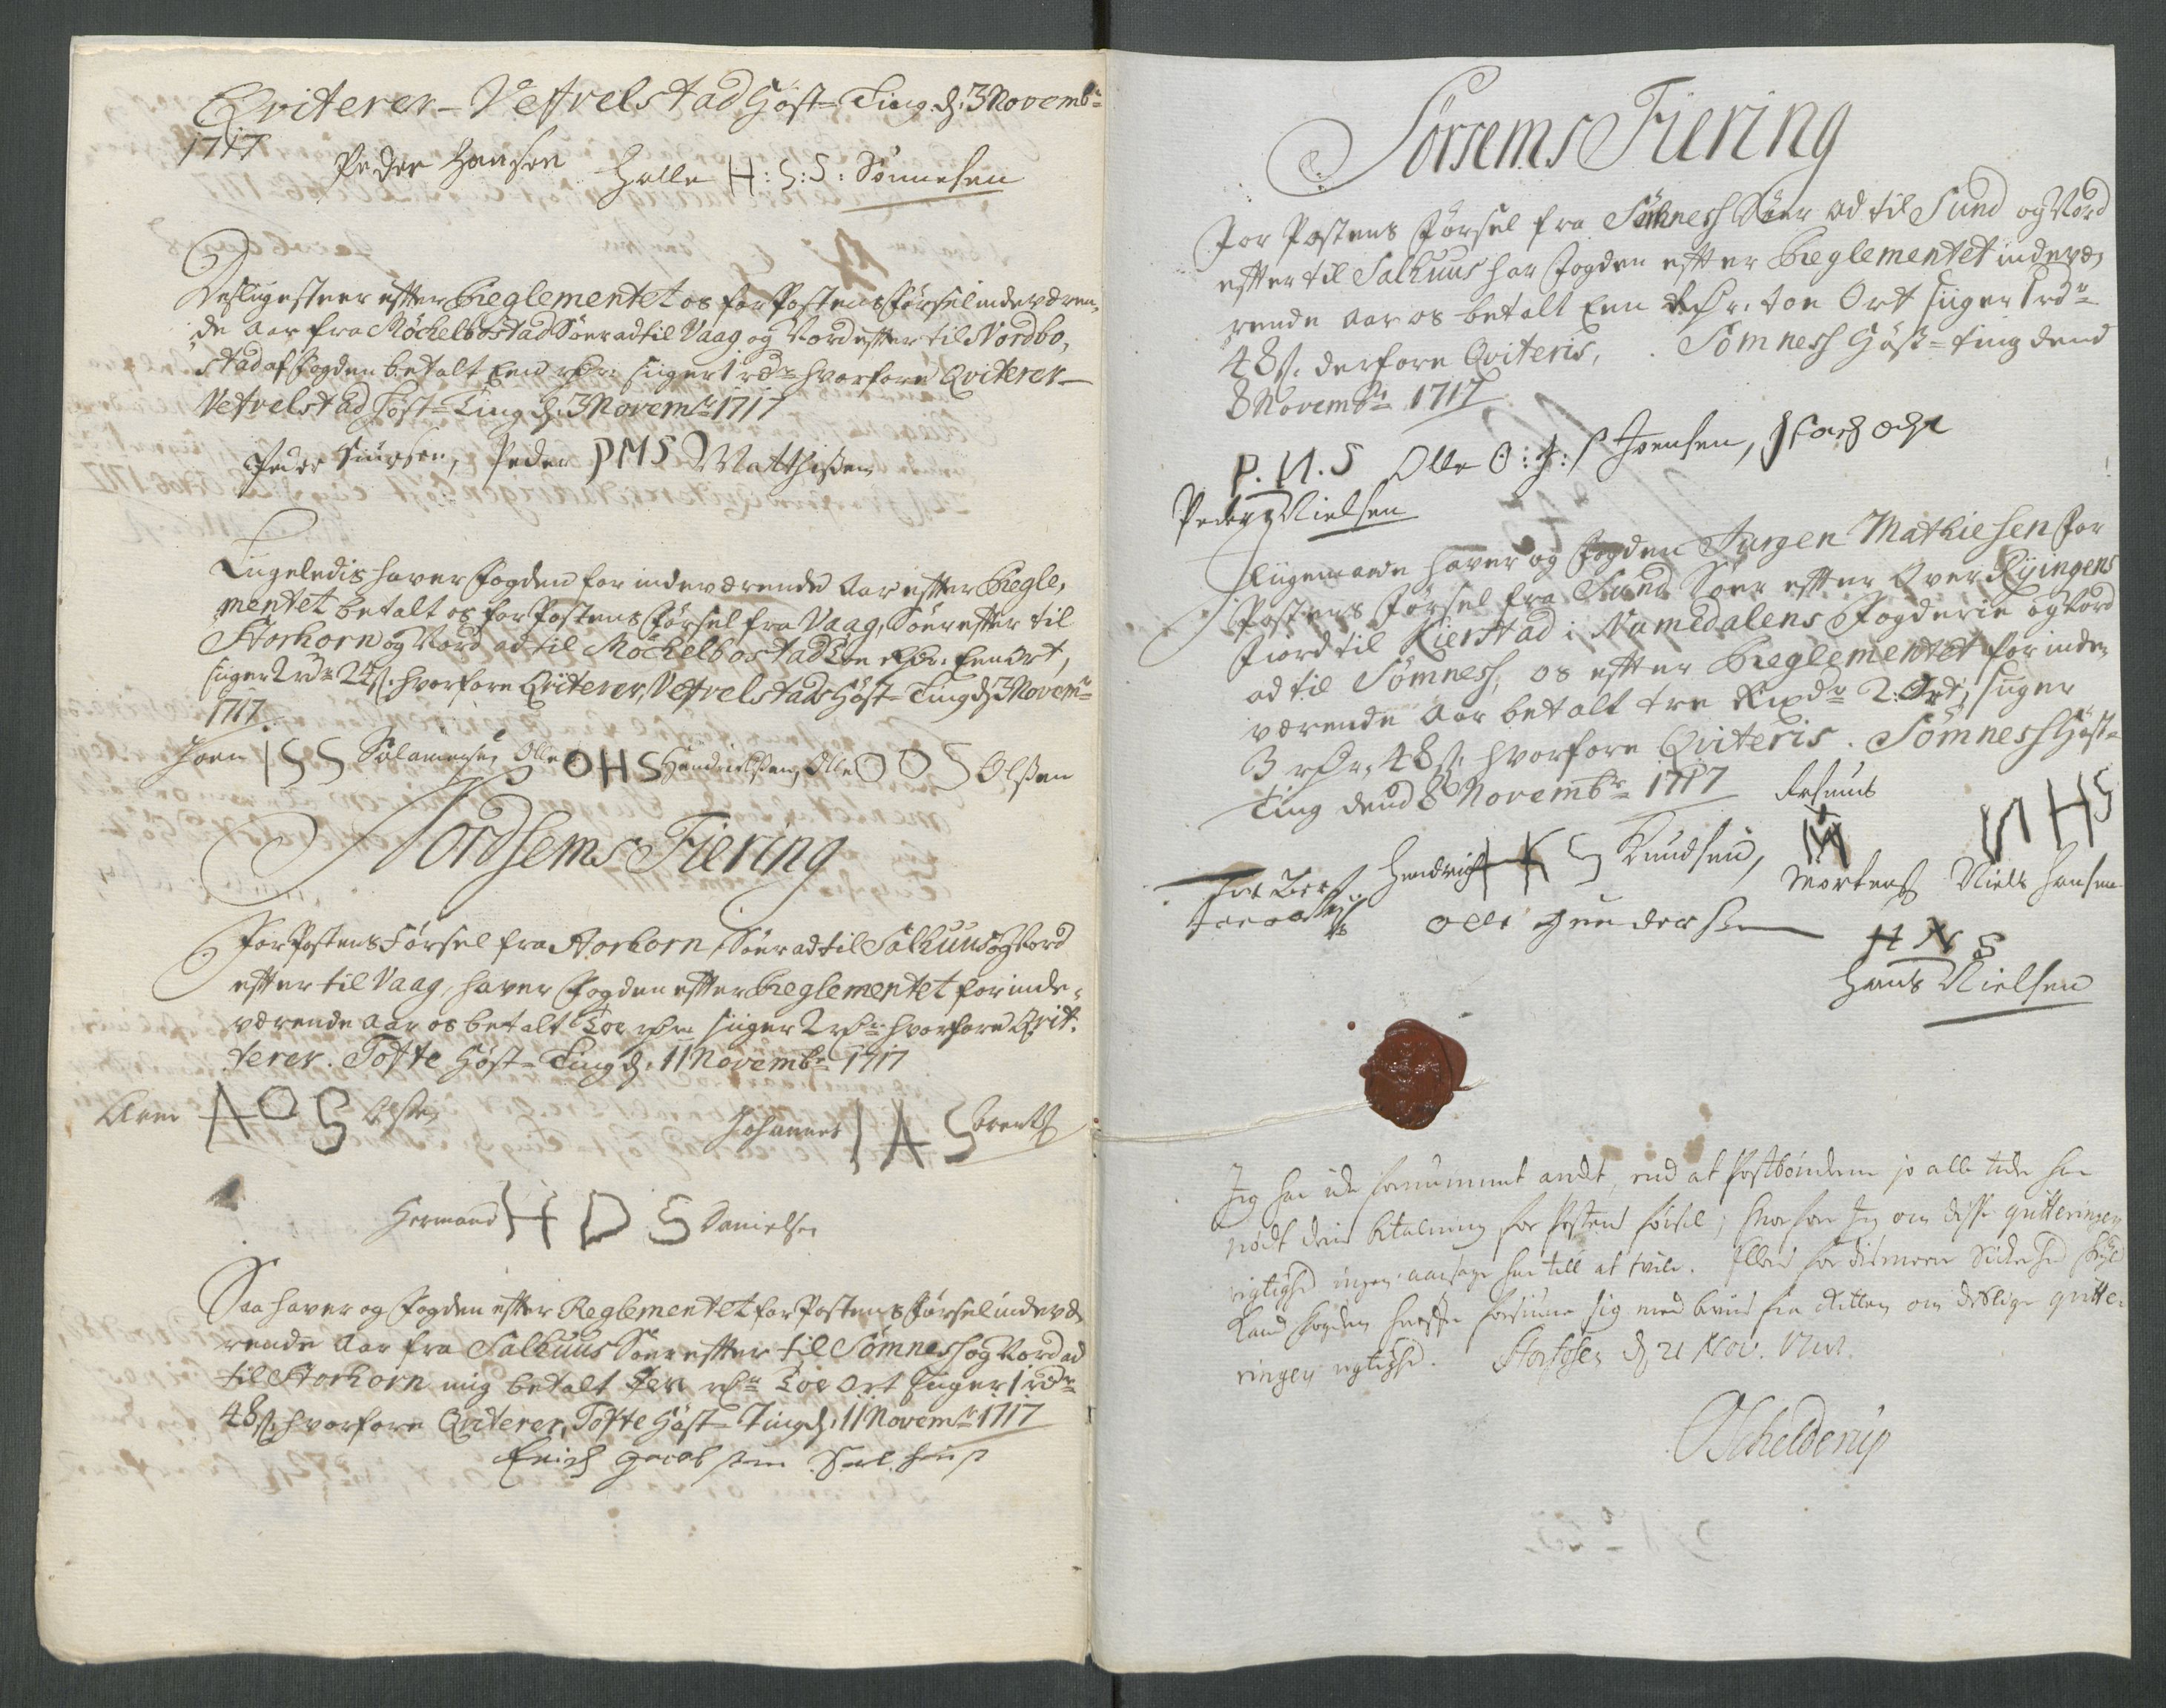 Qviterer- Vefvelstad Høst=Ting d. 3 Novembr
1717
Peder Hansen Halle H: S: S: Sønnesen
Desligeste er efter Reglementet os for Postens Førsel indeværen,
de Aar fra Møchelbostad Sønr ad til Vaag og Nord efter til Nordbo,
stad af Fogden betalt End rdr. siger 1 rdr hvorfore Qviterer-
Vefvelstad Høst=Ting d. 3 Novembr 1717
Peder Siursen, Peder PMS Matthisen
Ligeledis haver Fogden for indeværende Aar efter Regle,
mentet betalt os for Postens Førsel fra Vaag, Sønr efter til
Storhorn og Nord ad til Møchelbostad Toe rdr. Een Ort,
siger 2 rdr 24 s. hvorfore Qviterer, Vefvelstad Høst=Ting d. 3 Novembr
1717
Joen ISS Salamonsen Olle OHS Hendrichsen, Olle OOS Olsen
Nordsems Fiering
For Postens Førsel fra Storhorn, Sønr ad til Salhuus og Nord
efter til Vaag, haver Fogden efter Reglementet for inde=
værende Aar os betalt Toe rdr. siger 2 rdr hvorfore Qvit,
terer. Tofte Høst=Ting d. 11 Novembr 1717
Arn AOS Olsen Johannes IAS Arents
Hermand HDS Danielsen
Saa haver og Fogden efter Reglementet for Postens Førsel indevæ
rende Aar fra Salhuus Sønr efter til Sømnes og Nord ad
til Storhorn mig betalt Een rdr Toe Ort siger 1 rdr
48 s. hvorfore Qviterer, Tofte Høst=Ting d. 11 Novembr 1717
Erich Jacobsen Salhuus
Sørsems Fiering
For Postens Førsel fra Sømnes Sønr ad til Sund og Nord
efter til Salhuus har Fogden efter Reglementet indevæ,
rende Aar os betalt Een rdr. toe Ort siiger 1 rdr
48 s. derfore Qviteris, Sømnes Høst=ting dend
8 Novembr 1717
P. N. S Olle O: I: S Joensen,
Peder Nielsen
Liigemaade haver og Fogden Jurgen Mathiesen for
Postens Førsel fra Sund Sønr efter Over Kyingens
Fiord til Kierstad i Namedalens Fogderie og Nord
ad til Sømnes, os efter Reglementet for inde,
værende Aar betalt tre Rixdr 2 Ort, siiger
3 rdr. 48 s. hvorfore Qviteris. Sømnes Høst=
Ting dend 8 Novembr 1717 Rasmus
Hendrich HKS Knudsen, M NHS
Mortens Niels Hansen
Olle Gunders
HNS
Hans Nielsen
Jeg har ick fornummet andt, end at Postbønderne jo alle tider har
nødt deris betalning for Postens førsel; hvorfor Jeg om disse qvitteringers
rigtighed ingen aarsage har till at tvile. Ellers for dismere Sickerhed skyld
kand Fogden herofver forsiune sig med beviis fra Retten om deslige qvitte-
ringers rigtighed. d. 21 Nov. 1717.
Schelderup